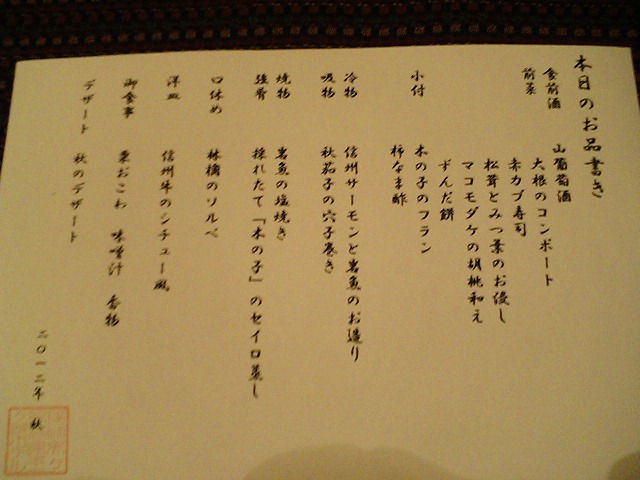 本日のお品書き
食前酒 山葡萄酒
前菜 大根のコンポート
赤カブ寿司
松茸とみつ葉のお浸し
マコモダケの胡桃和え
ずんだ餅
小付 木の子のフラン
柿なます酢
冷物 信州サーモンと岩魚のお造り
吸物 秋茄子の穴子巻き
焼物 岩魚の塩焼き
強肴 採れたて「木の子」のセイロ蒸し
口休め 林檎のソルベ
洋皿 信州牛のシチュー風
御食事 栗おこわ 味噌汁 香物
デザート 秋のデザート
二〇一二年 秋